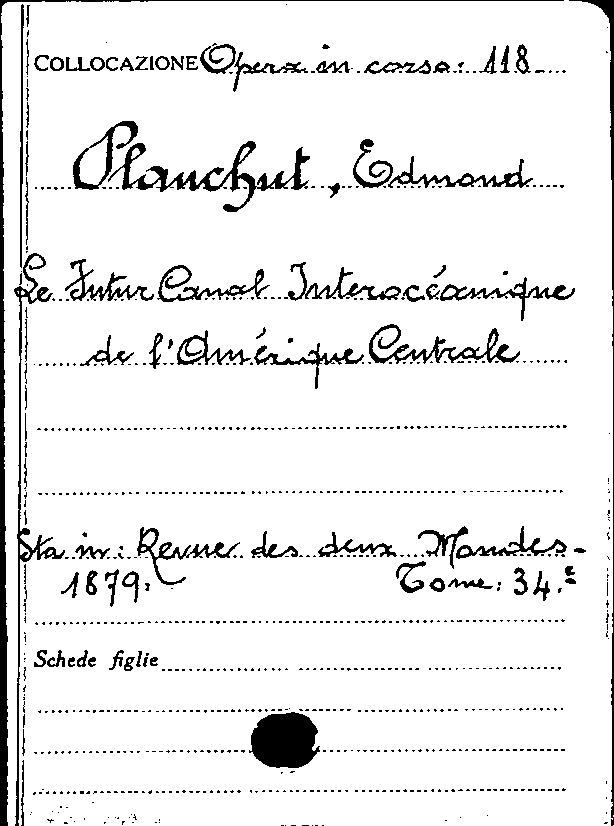 COLLOCAZIONE Opera in corso: 118
Planchut, Edmond
Le Futur Canal Interocéanique
de l'Amérique Centrale
Sta in: Revue des deux Mondes-
1879. Tome: 34.e
Schede figlie